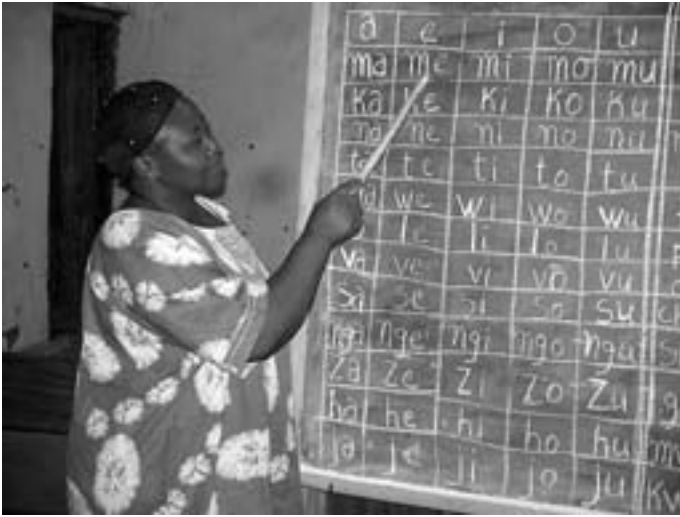 a e i o u
ma me mi mo mu
ka ke ki ko ku
na ne ni no nu
ta te ti to tu
we wi wo wu
le li lo lu
va ve vi vo vu
sa se si so su
nga nge ngi ngo ngu
za ze zi zo zu
ha he hi ho hu
ja je ji jo ju